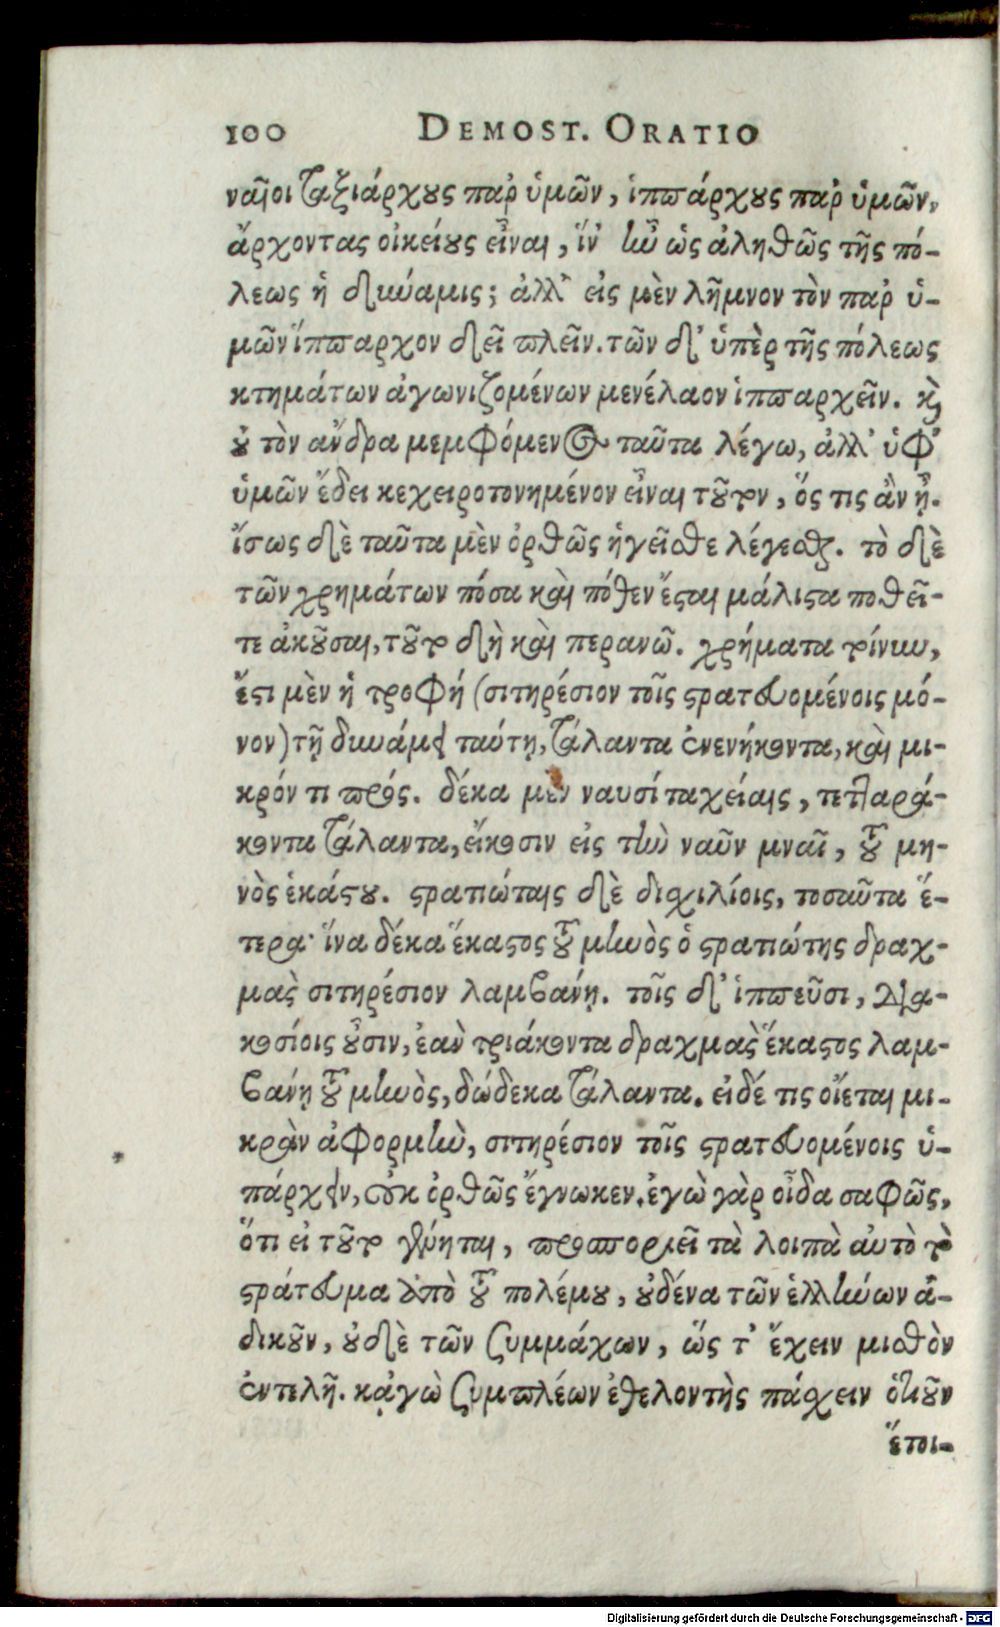 100 DEMOST. ORATIO
ναῖοι ταξιάρχους παρ' ὑμῶν, ἱππάρχους παρ' ὑμῶν,
ἄρχοντας οἰκείους εἶναι, ἵν' ἦν ὡς ἀληθῶς τῆς πό-
λεως ἡ δύναμις; ἀλλ' εἰς μὲν λῆμνον τὸν παρ' ὑ-
μῶν ἵππαρχον δεῖ πλεῖν. τῶν δ' ὑπὲρ τῆς πόλεως
κτημάτων ἀγωνιζομένων μενέλαον ἱππαρχεῖν. καὶ
οὐ τὸν ἄνδρα μεμφόμενος ταῦτα λέγω, ἀλλ' ὑφ'
ὑμῶν ἔδει κεχειροτονημένον εἶναι τοῦτον, ὅς τις ἂν ᾖ.
ἴσως δὲ ταῦτα μὲν ὀρθῶς ἡγεῖσθε λέγεσθαι. τὸ δὲ
τῶν χρημάτων πόσα καὶ πόθεν ἔσται μάλιστα ποθεῖ-
τε ἀκοῦσαι, τοῦτο δὴ καὶ περανῶ. χρήματα τοίνυν,
ἔστι μὲν ἡ τροφή (σιτηρέσιον τοῖς στρατευομένοις μό-
νον) τῇ δυνάμει ταύτῃ, τάλαντα ἐνενήκοντα, καὶ μι-
κρόν τι πρός. δέκα μὲν ναυσὶ ταχείαις, τετταρά-
κοντα τάλαντα, εἴκοσιν εἰς τὴν ναῦν μναῖ, τοῦ μη-
νὸς ἑκάστου. στρατιώταις δὲ διχιλίοις, τοσαῦτα ἕ-
τερα· ἵνα δέκα ἕκαστος τοῦ μηνὸς ὁ στρατιώτης δραχ-
μὰς σιτηρέσιον λαμβάνῃ. τοῖς δ' ἱππεῦσι, δια-
κοσίοις οὖσιν, ἐὰν τριάκοντα δραχμὰς ἕκαστος λαμ-
βάνῃ τοῦ μηνὸς, δώδεκα τάλαντα. εἰ δέ τις οἴεται μι-
κρὰν ἀφορμὴν, σιτηρέσιον τοῖς στρατευομένοις ὑ-
πάρχειν, οὐκ ὀρθῶς ἔγνωκεν. ἐγὼ γὰρ οἶδα σαφῶς,
ὅτι εἰ τοῦτο γένηται, προσποριεῖ τὰ λοιπὰ αὐτὸ τὸ
στράτευμα ἀπὸ τοῦ πολέμου, οὐδένα τῶν ἑλλήνων ἀ-
δικοῦν, οὐδὲ τῶν συμμάχων, ὥς τ' ἔχειν μισθὸν
ἐντελῆ. κἀγὼ συμπλέων ἐθελοντὴς πάσχειν ὁτιοῦν
ἕτοι-
Digitalisierung gefördert durch die Deutsche Forschungsgemeinschaft - DFG